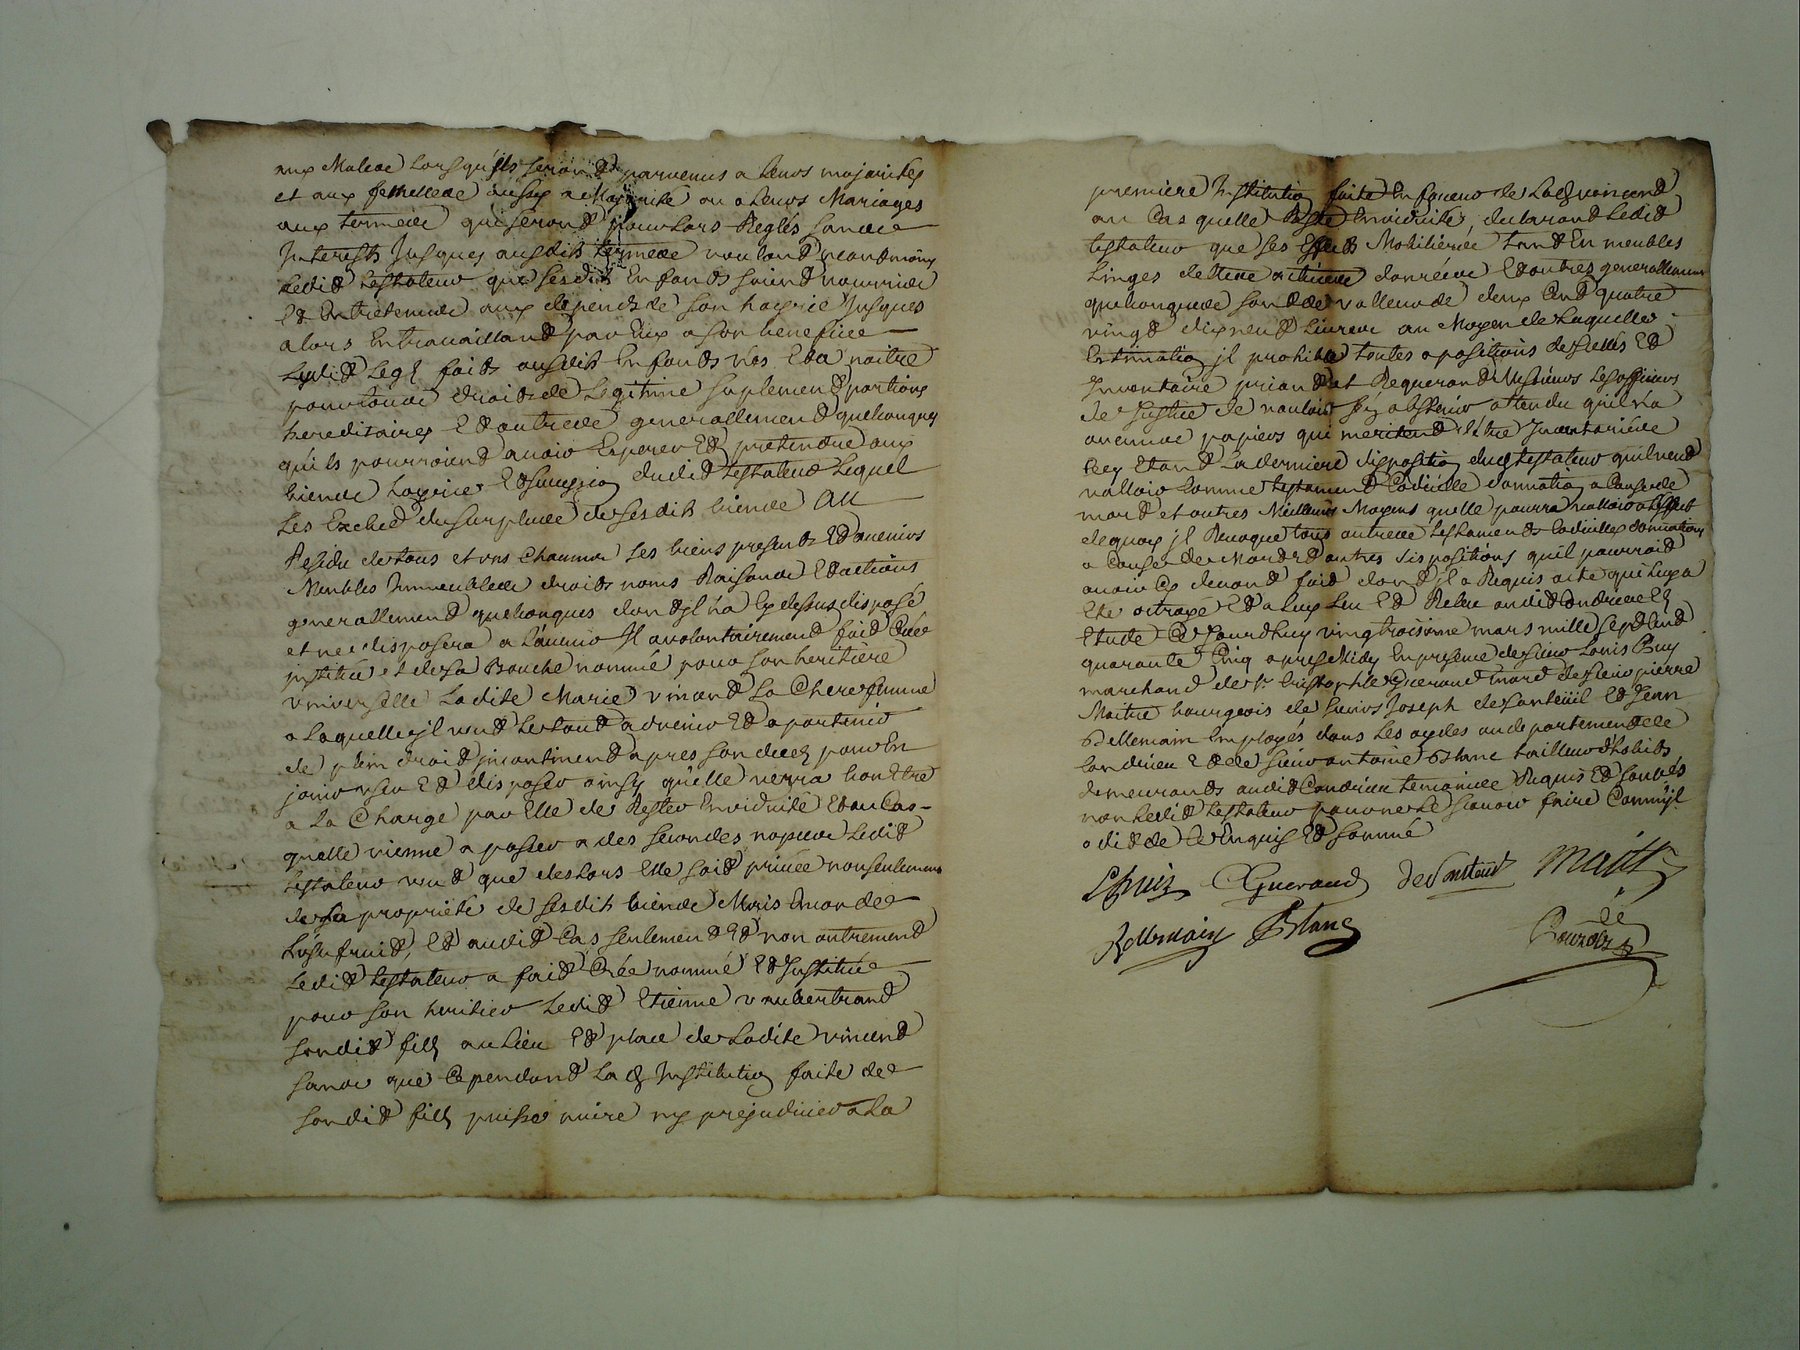 aux Malles lorsqu'ils seront parvenus a leurs majorites
et aux femelles aussy a Majorité ou a leurs Mariages
aux termes qui seront pour lors Reglés sans
Interests Jusques ausdits termes voulant neantmoins
ledit testateur que sesdits Enfants soient nourris
Et Entretenus aux dépends de son hoyrie Jusques
alors En travaillant par Eux a son benefice
ledit Legs fait ausdits Enfants nés Et a naitre
pour tous droits de Legitime suplement portions
hereditaires Et autres generallement quelconques
qu'ils pourroient avoir Esperer Et pretendre aux
biens hoyrie Et succession dudit testateur Lequel
Les Exclud du surplus de sesdits biens Au
Residu de tous et uns chacuns ses biens presents Et avenirs
Meubles Immeubles droits noms Raisons Et actions
generallement quelconques dont il n'a Cy dessus disposé
et ne disposera a l'avenir Il a volontairement fait Créé
institué et de sa Bouche nommé pour son heritière
universelle Ladite Marie vincent sa Chere femme
a Laquelle il veut Le tout advenir Et apartenir
de plein droit incontinent apres son decez pour En
jouir user Et disposer ainsy qu'elle verra bon Etre
a La Charge par Elle de Rester En viduité Et au Cas
quelle vienne a passer a des secondes nopces Ledit
testateur veut que des lors Elle soit privée non seulement
de la propriété de sesdits biens Mais Encor de
L'usufruit, Et audit Cas seulement Et non autrement
Ledit testateur a fait Créé nommé Et Institué
pour son heritier Ledit Etienne vaubertrand
sondit fils au Lieu Et place de Ladite vincent
sans que Cependant La d Institution faite de
sondit fils puisse nuire ny prejudicier a La
premiere Institution faite En faveur de La d vincent
au Cas quelle Reste En viduité, declarant Ledit
testateur que ses Effets Mobilières tant En meubles
Linges denrées Et autres generallement
quelconques sont de valleur de deux Cent quatre
vingt dix neuf Livres au Moyen de Laquelle
Estimation il prohibe toutes apositions de scellés Et
Inventaire priant et Requerant Messieurs Les officiers
de Justice de vouloir s'y abstenir attendu qu'il n'a
aucuns papiers qui meritent d'être Inventoriés
Cecy Etant La derniere disposition dud testateur qu'il veut
valloir Comme testament Codicille donnation a Cause de
mort et autres Meilleurs Moyens quelle pourra valloir a L'effet
dequoy il Revoque tous autres testaments Codicilles donnations
a Cause de Mort Et autres dispositions qu'il pourroit
avoir Cy devant fait dont il a Requis acte qui Luy a
Eté octroyé Et a luy Leu Et Releu audit Condrieu Es
Etude Ce Jourdhuy vingtroisieme mars mille sept Cent
quarante Cinq apres Midy En presence de sieur Louis Puy
marchand de sr Cristophle Gueraud mard de sieur pierre
Maitre bourgeois de sieurs Joseph de santeüil Et Jean
Bellemain Employés dans Les aydes au departement de
Condrieu Et de sieur antoine Blanc tailleur d'habits
demeurants audit Condrieu temoins Requis Et soubsés
non Ledit testateur pour ne Le scavoir faire Comm'il
a dit de Ce Enquis Et sommé
LPuis CGueraud desanteuil Maitre
Bellemain Blanc